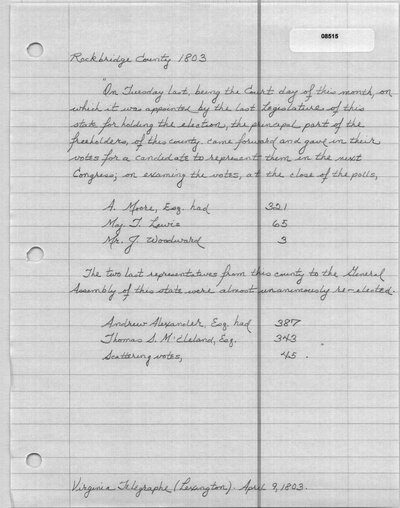 08515
Rockbridge County 1803
"On Tuesday last, being the Court day of this month, on
which it was appointed by the last Legislature of this
state for holding the election, the principal part of the
freeholders, of this county came forward and gave in their
votes for a candidate to represent them in the next
Congress; on examing the votes, at the close of the polls,
A. Moore, Esq. had 321
Maj T. Lewis 65
Mr. J. Woodward 3
The two last representatives from this county to the General
Assembly of this state were almost unanimously re-elected.
Andrew Alexander, Esq. had 387
Thomas S. McCleland, Esq. 343
Scattering votes, 45.
Virginia Telegraphe (Lexington). April 9, 1803.